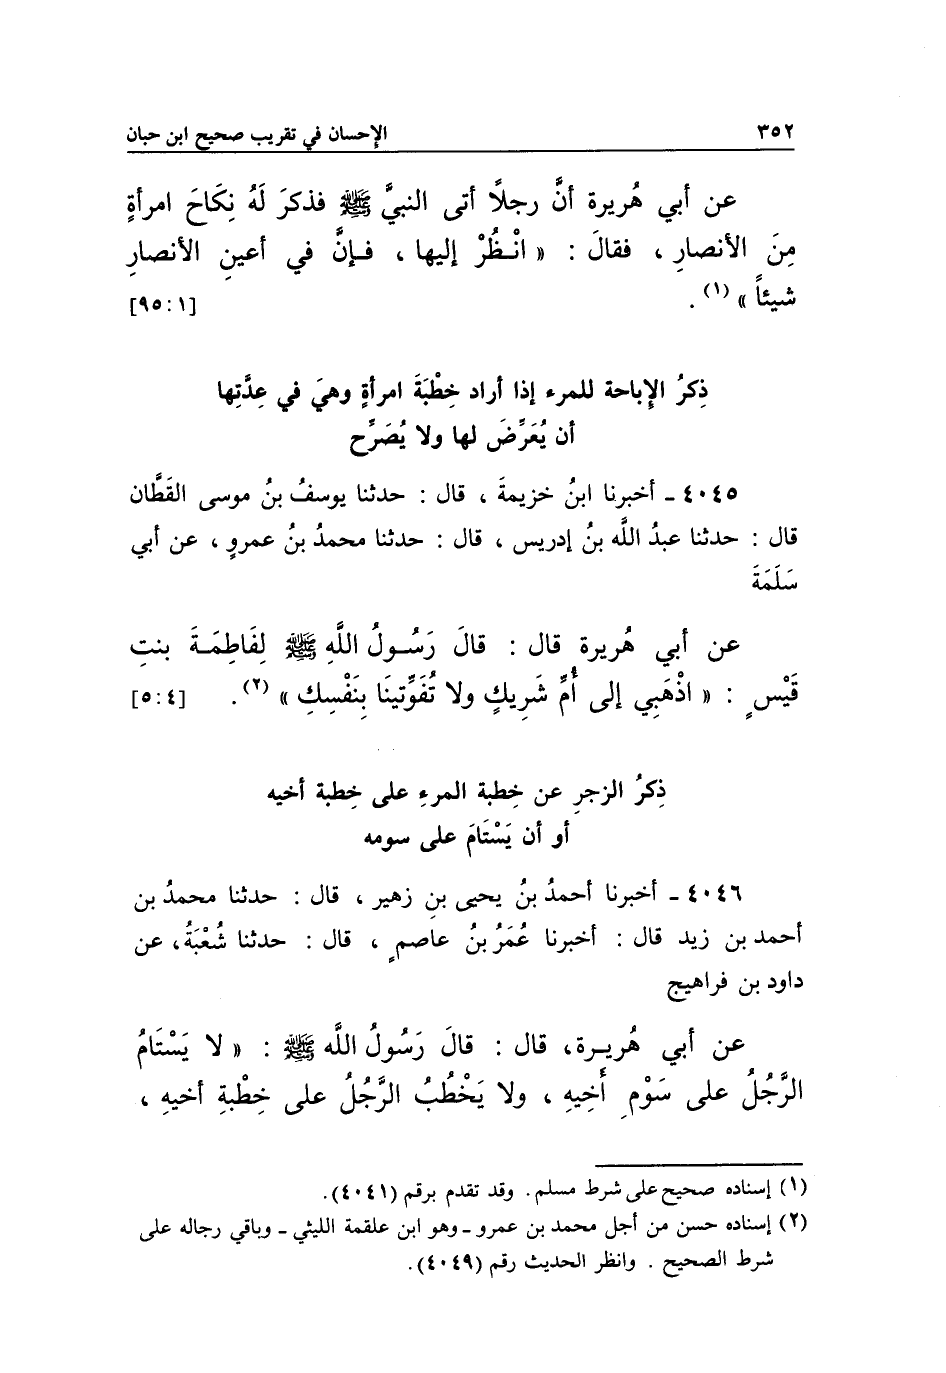 ٣٥٢ الإحسان في تقريب صحيح ابن حبان
عن أبي هُريرة أنَّ رجلًا أتى النبيَّ ﷺ فذكرَ لَهُ نِكَاحَ امرأةٍ
مِنَ الأنصارِ ، فقالَ : « انْـظُرْ إليها ، فـإنَّ في أعينِ الأنصارِ
شيئاً » (١) . [١:٩٥]
ذِكرُ الإِباحة للمرء إذا أراد خِطْبَةَ امرأةٍ وهيَ في عِدَّتِها
أن يُعَرِّضَ لها ولا يُصَرِّح
٤٠٤٥ ـ أخبرنا ابنُ خزيمةَ ، قال : حدثنا يوسفُ بنُ موسى القَطَّان
قال : حدثنا عبدُ اللَّه بنُ إدريس ، قال : حدثنا محمدُ بنُ عمرٍو ، عن أبي
سَلَمَةَ
عن أبي هُريرة قال : قالَ رَسُـولُ اللَّهِ ﷺ لِفَاطِمَـةَ بنتِ
قَيْسٍ : « اذْهَبِي إلى أُمِّ شَرِيكٍ ولا تُفَوِّتينَا بِنَفْسِكِ » (٢) . [٤:٥]
ذِكرُ الزجرِ عن خِطبة المرءِ على خِطبة أخيه
أو أن يَسْتَامَ على سومه
٤٠٤٦ ـ أخبرنا أحمدُ بنُ يحيى بنِ زهير ، قال : حدثنا محمدُ بن
أحمد بن زيد قال : أخبرنا عُمَرُ بنُ عاصمٍ ، قال : حدثنا شُعْبَةُ، عن
داود بن فراهيج
عن أبي هُريـرة، قال : قالَ رَسُولُ اللَّه ﷺ : « لا يَسْتَامُ
الرَّجُلُ على سَوْمِ أَخِيهِ ، ولا يَخْطُبُ الرَّجُلُ على خِطْبةِ أخيهِ ،
(١) إسناده صحيح على شرط مسلم . وقد تقدم برقم (٤٠٤١).
(٢) إسناده حسن من أجل محمد بن عمرو ـ وهو ابن علقمة الليثي ـ وباقي رجاله على
شرط الصحيح . وانظر الحديث رقم (٤٠٤٩).